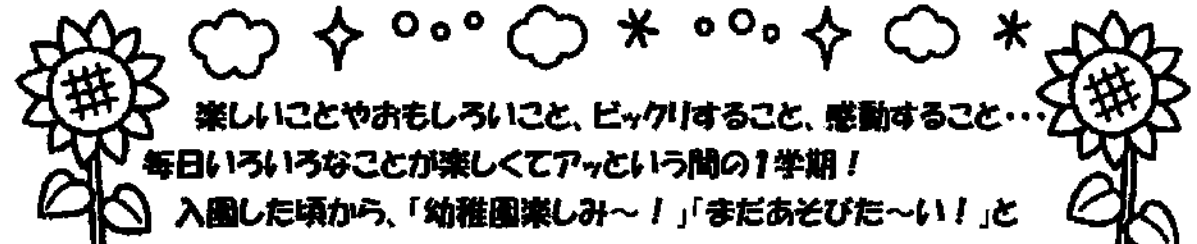 楽しいことやおもしろいこと、ビックリすること、感動すること・・・
毎日いろいろなことが楽しくてアッという間の1学期！
入園した頃から、「幼稚園楽しみ～！」「まだあそびた～い！」と